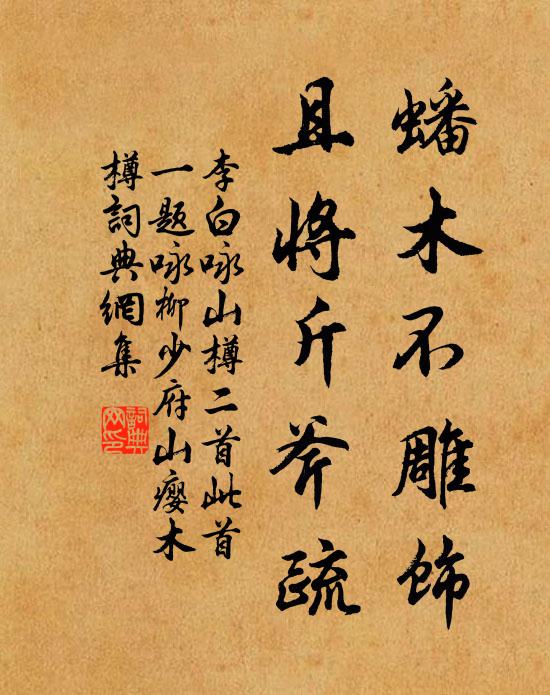 蟠木不雕飾
且將斤斧疏
李白咏山樽二首此首
一题咏柳少府山瘿木
樽詞典網集
詞典
网印